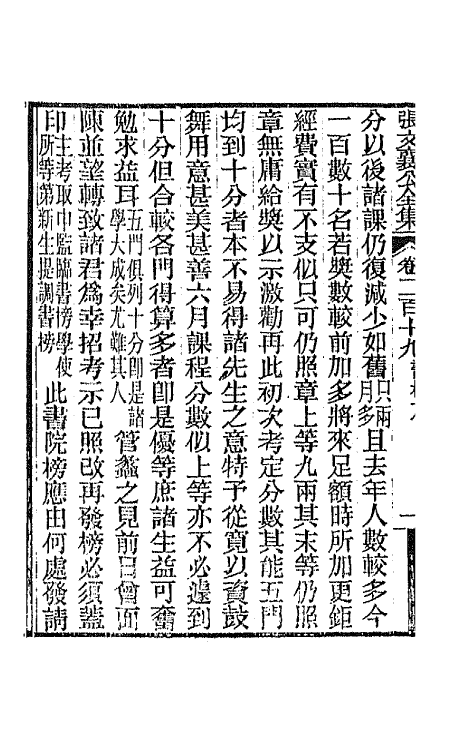 張文襄公全集 卷二百十九 書札六 一
分以後諸課仍復減少如舊只兩月多且去年人數較多今
一百數十名若獎數較前加多將來足額時所加更鉅
經費實有不支似只可仍照章上等九兩其末等仍照
章無庸給獎以示激勸再此初次考定分數其能五門
均到十分者本不易得諸先生之意特予從寬以資鼓
舞用意甚美甚善六月課程分數似上等亦不必遽到
十分但合較各門得算多者卽是優等庶諸生益可奮
勉求益耳五門俱列十分卽是諸學大成矣尤難其人管蠡之見前日曾面
陳並望轉致諸君爲幸招考示已照改再發榜必須蓋
印主考取中監臨書榜學使所等第新生提調書榜此書院榜應由何處發請